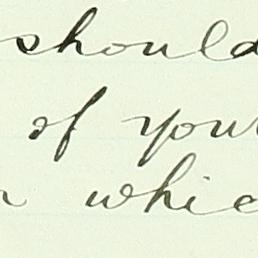 should
of your
which